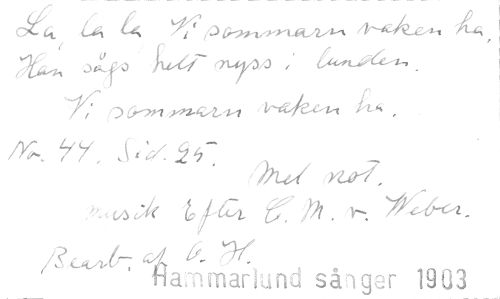 La, la la Vi sommarn vaken ha,
Han sågs helt nyss i lunden.
Vi sommarn vaken ha.
No. 44. Sid. 25.
Mel not.
musik Efter C. M. v. Weber.
Bearb. af C. H.
Hammarlund sånger 1903